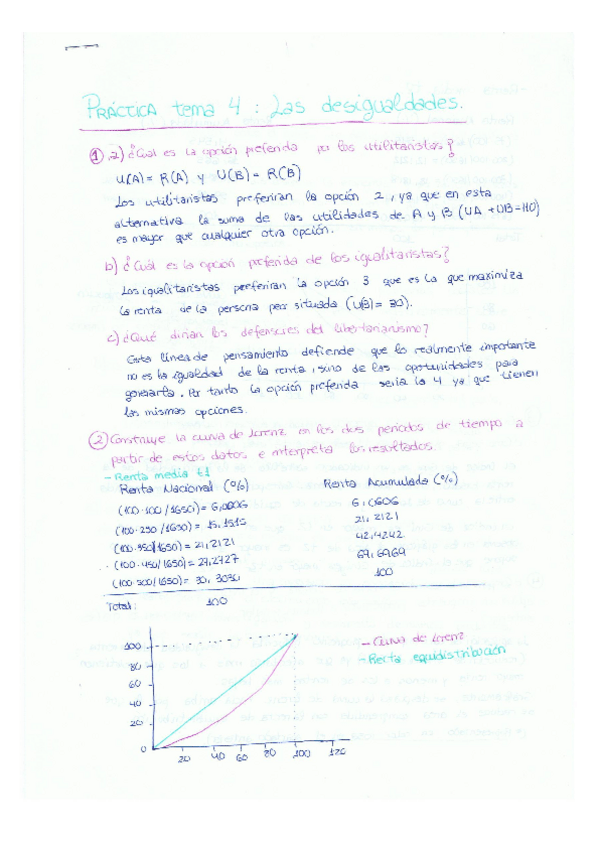 PRÁCTICA tema 4 : Las desigualdades.
1 a) ¿Cuál es la opción preferida por los utilitaristas?
U(A) = R(A) y U(B) = R(B)
Los utilitaristas preferirán la opción 2, ya que en esta
alternativa la suma de las utilidades de A y B (UA + UB = 110)
es mayor que cualquier otra opción.
b) ¿Cuál es la opción preferida de los igualitaristas?
Los igualitaristas preferirán la opción 3 que es la que maximiza
la renta de la persona peor situada (U(B) = 30).
c) ¿Qué dirían los defensores del libertarianismo?
Esta línea de pensamiento defiende que lo realmente importante
no es la igualdad de la renta, sino de las oportunidades para
ganarla. Por tanto la opción preferida sería la 4 ya que tienen
las mismas opciones.
2 Construye la curva de Lorenz en los dos periodos de tiempo a
partir de estos datos e interpreta los resultados.
- Renta media t1
Renta Nacional (%) Renta Acumulada (%)
(100·100/1650) = 6,0606 6,0606
(100·250/1650) = 15,1515 21,2121
(100·350/1650) = 21,2121 42,4242
(100·450/1650) = 27,2727 69,6969
(100·500/1650) = 30,3030 100
Total: 100
100
80
60
40
20
0
20 40 60 80 100 120
- Curva de Lorenz
- Recta equidistribución